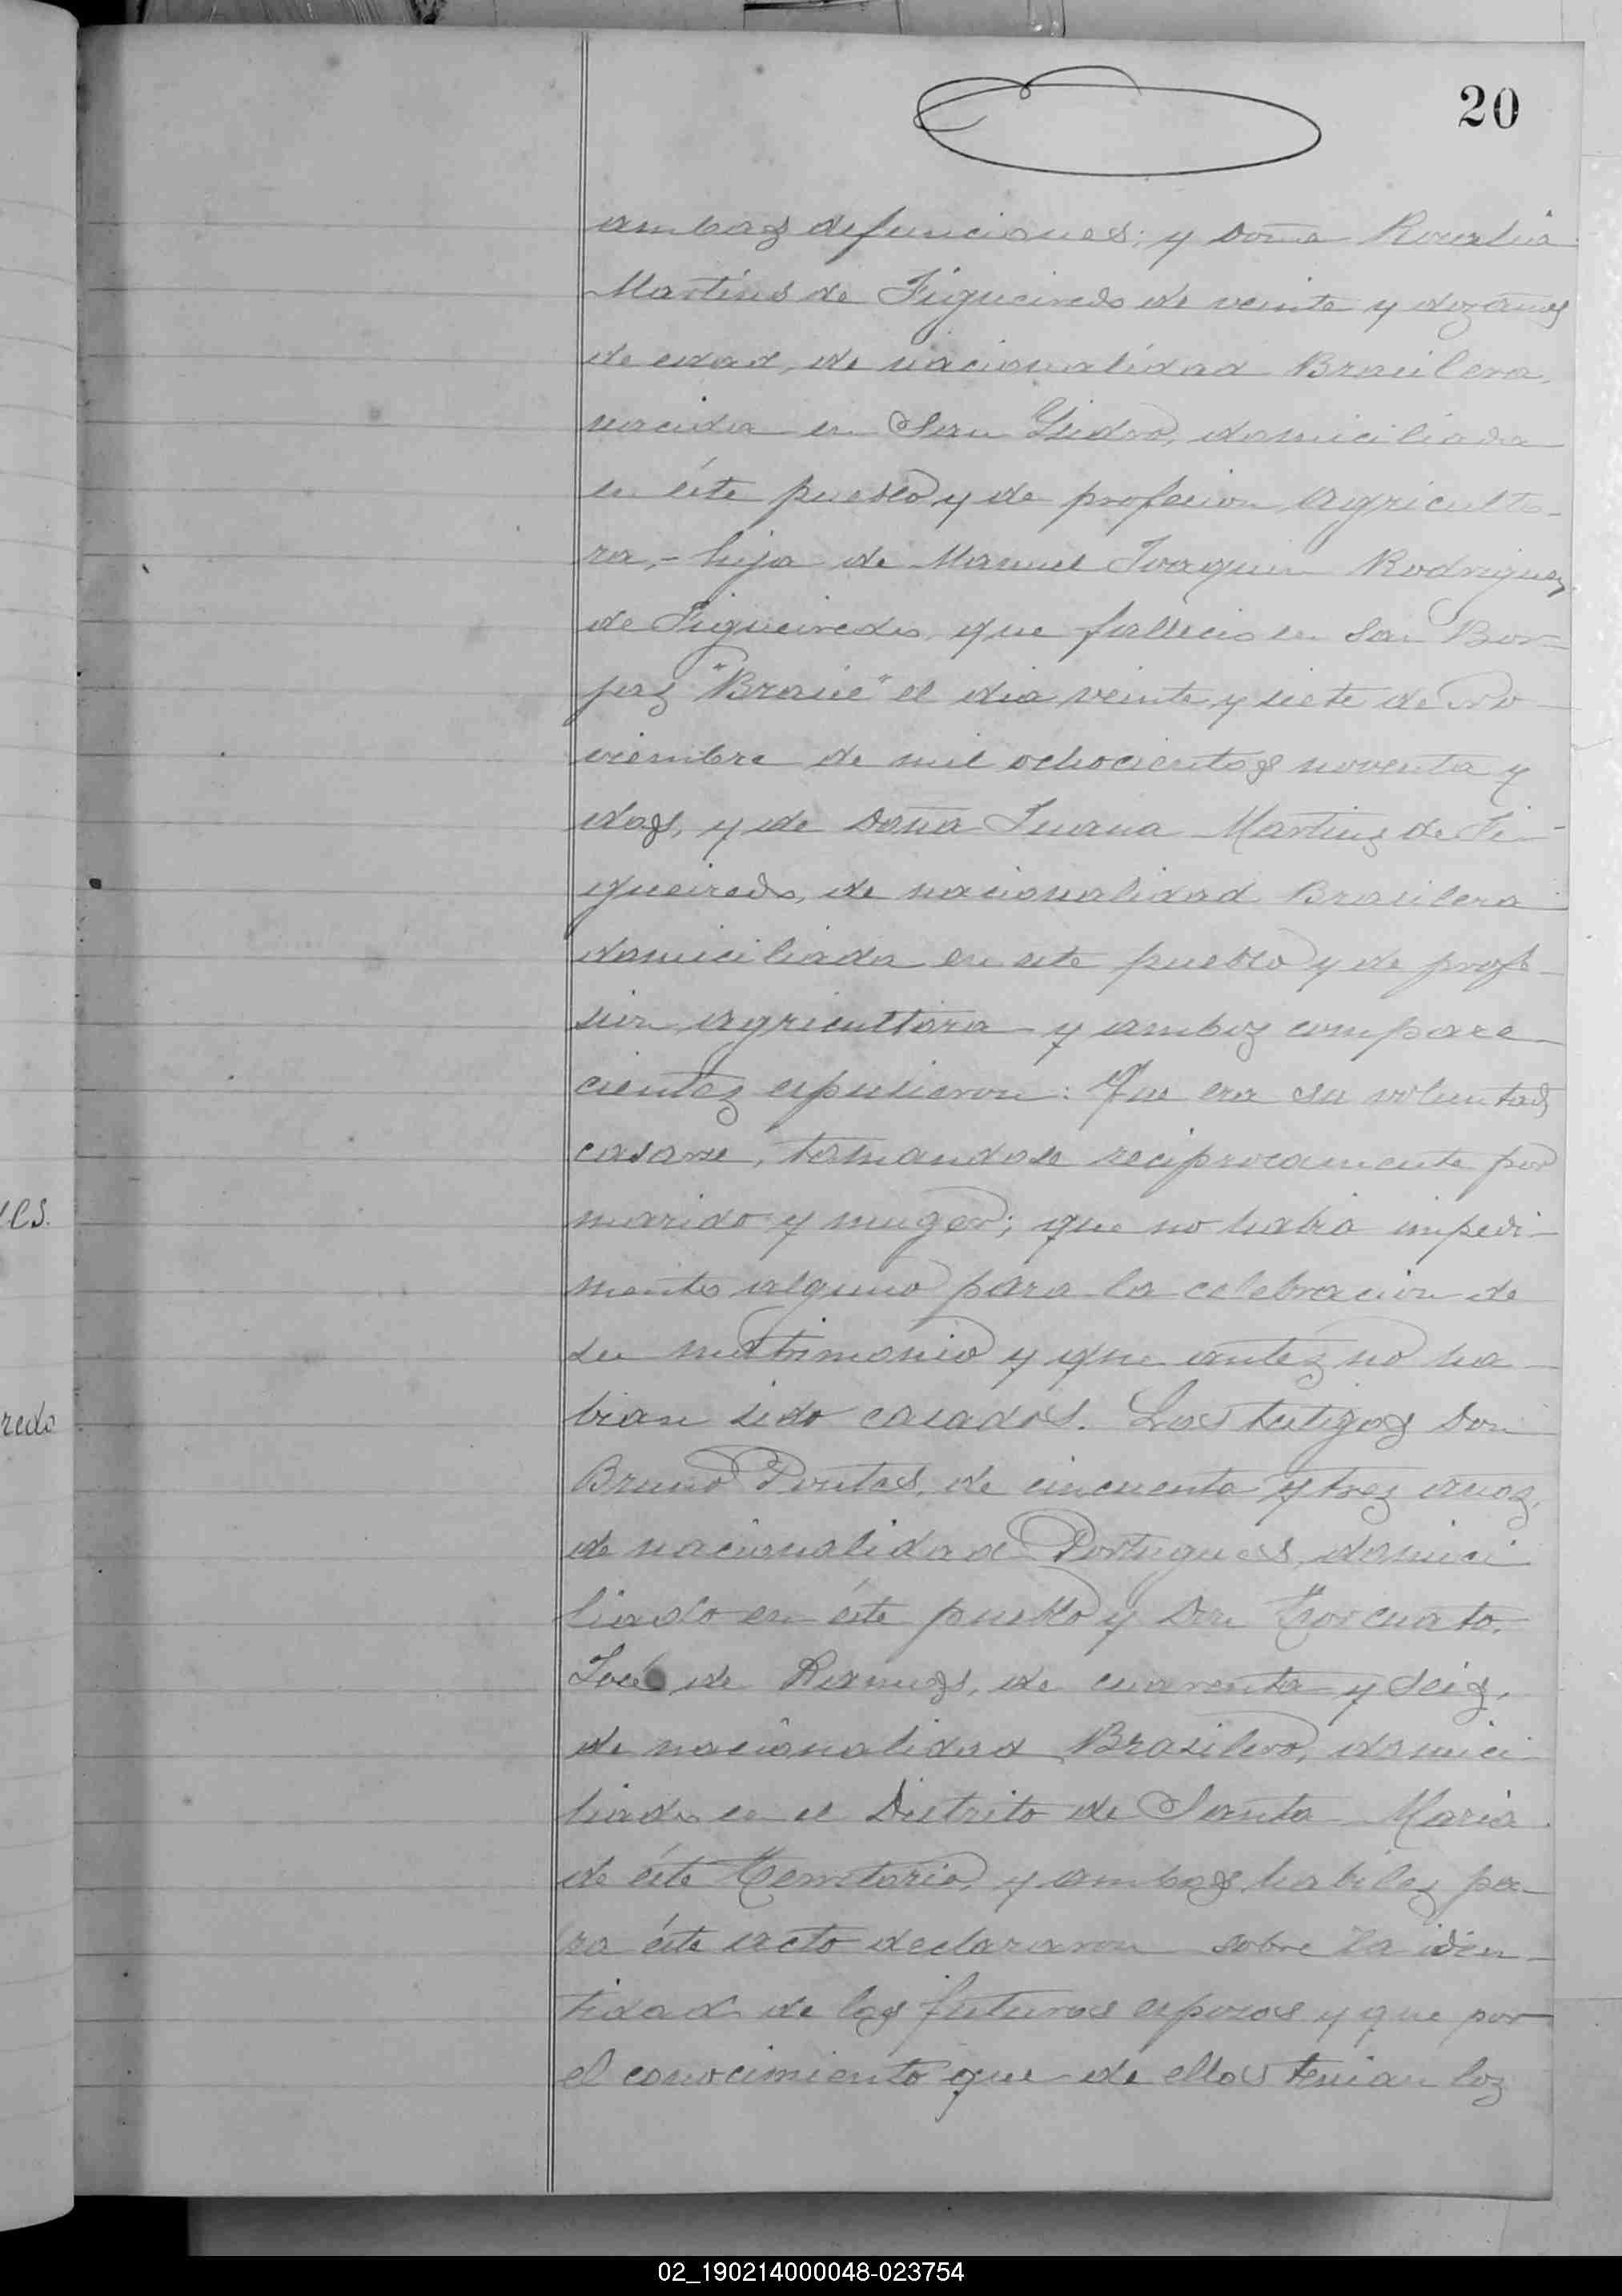 20
ambas defunciones; y doña Rosalia
Martins de Figueiredo de veinte y doz años
de edad, de nacionalidad Brasilera,
nacida en San Ysidro, domiciliada
en éste pueblo y de profesion agriculto-
ra,- hija de Manuel Joaquin Rodriguez
de Figueiredo, que fallecio en San Bor-
jas "Brasil" el dia veinte y siete de No-
viembre de mil ochocientos noventa y
dos, y de Doña Juana Martinz de Fi-
gueiredo, de nacionalidad Brasilera
domiciliada en este pueblo y de profe-
sion agricultora y amboz compare-
cientez espusieron: Que era su voluntad
casarse, tomandose reciprocamente por
marido y muger; que no habia impedi-
mento alguno para la celebracion de
su matrimonio y que antez no ha-
bian sido casados. Los testigos Don
Bruno Pontes, de cincuenta y trez anoz,
de nacionalidad Portugues, domici-
liado en éste pueblo y Don Torcuato
José de Ramos, de cuarenta y seiz,
de nacionalidad Brasilero, domici-
liado en el Distrito de Santa Maria
de éste Territorio, y ambos habilez pa-
ra éste acto declararon sobre la iden-
tidad de los futuros esposos y que por
el conocimiento que de ellos tenian loz
les.
redo
02_190214000048-023754